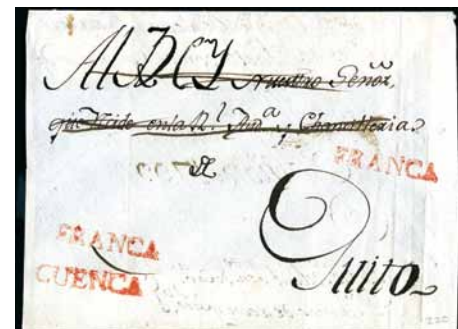 Al REY Nuestro Señor,
que reside en la R.l Aud.a y Chancilleria
de
FRANCA
Quito
FRANCA
CUENCA